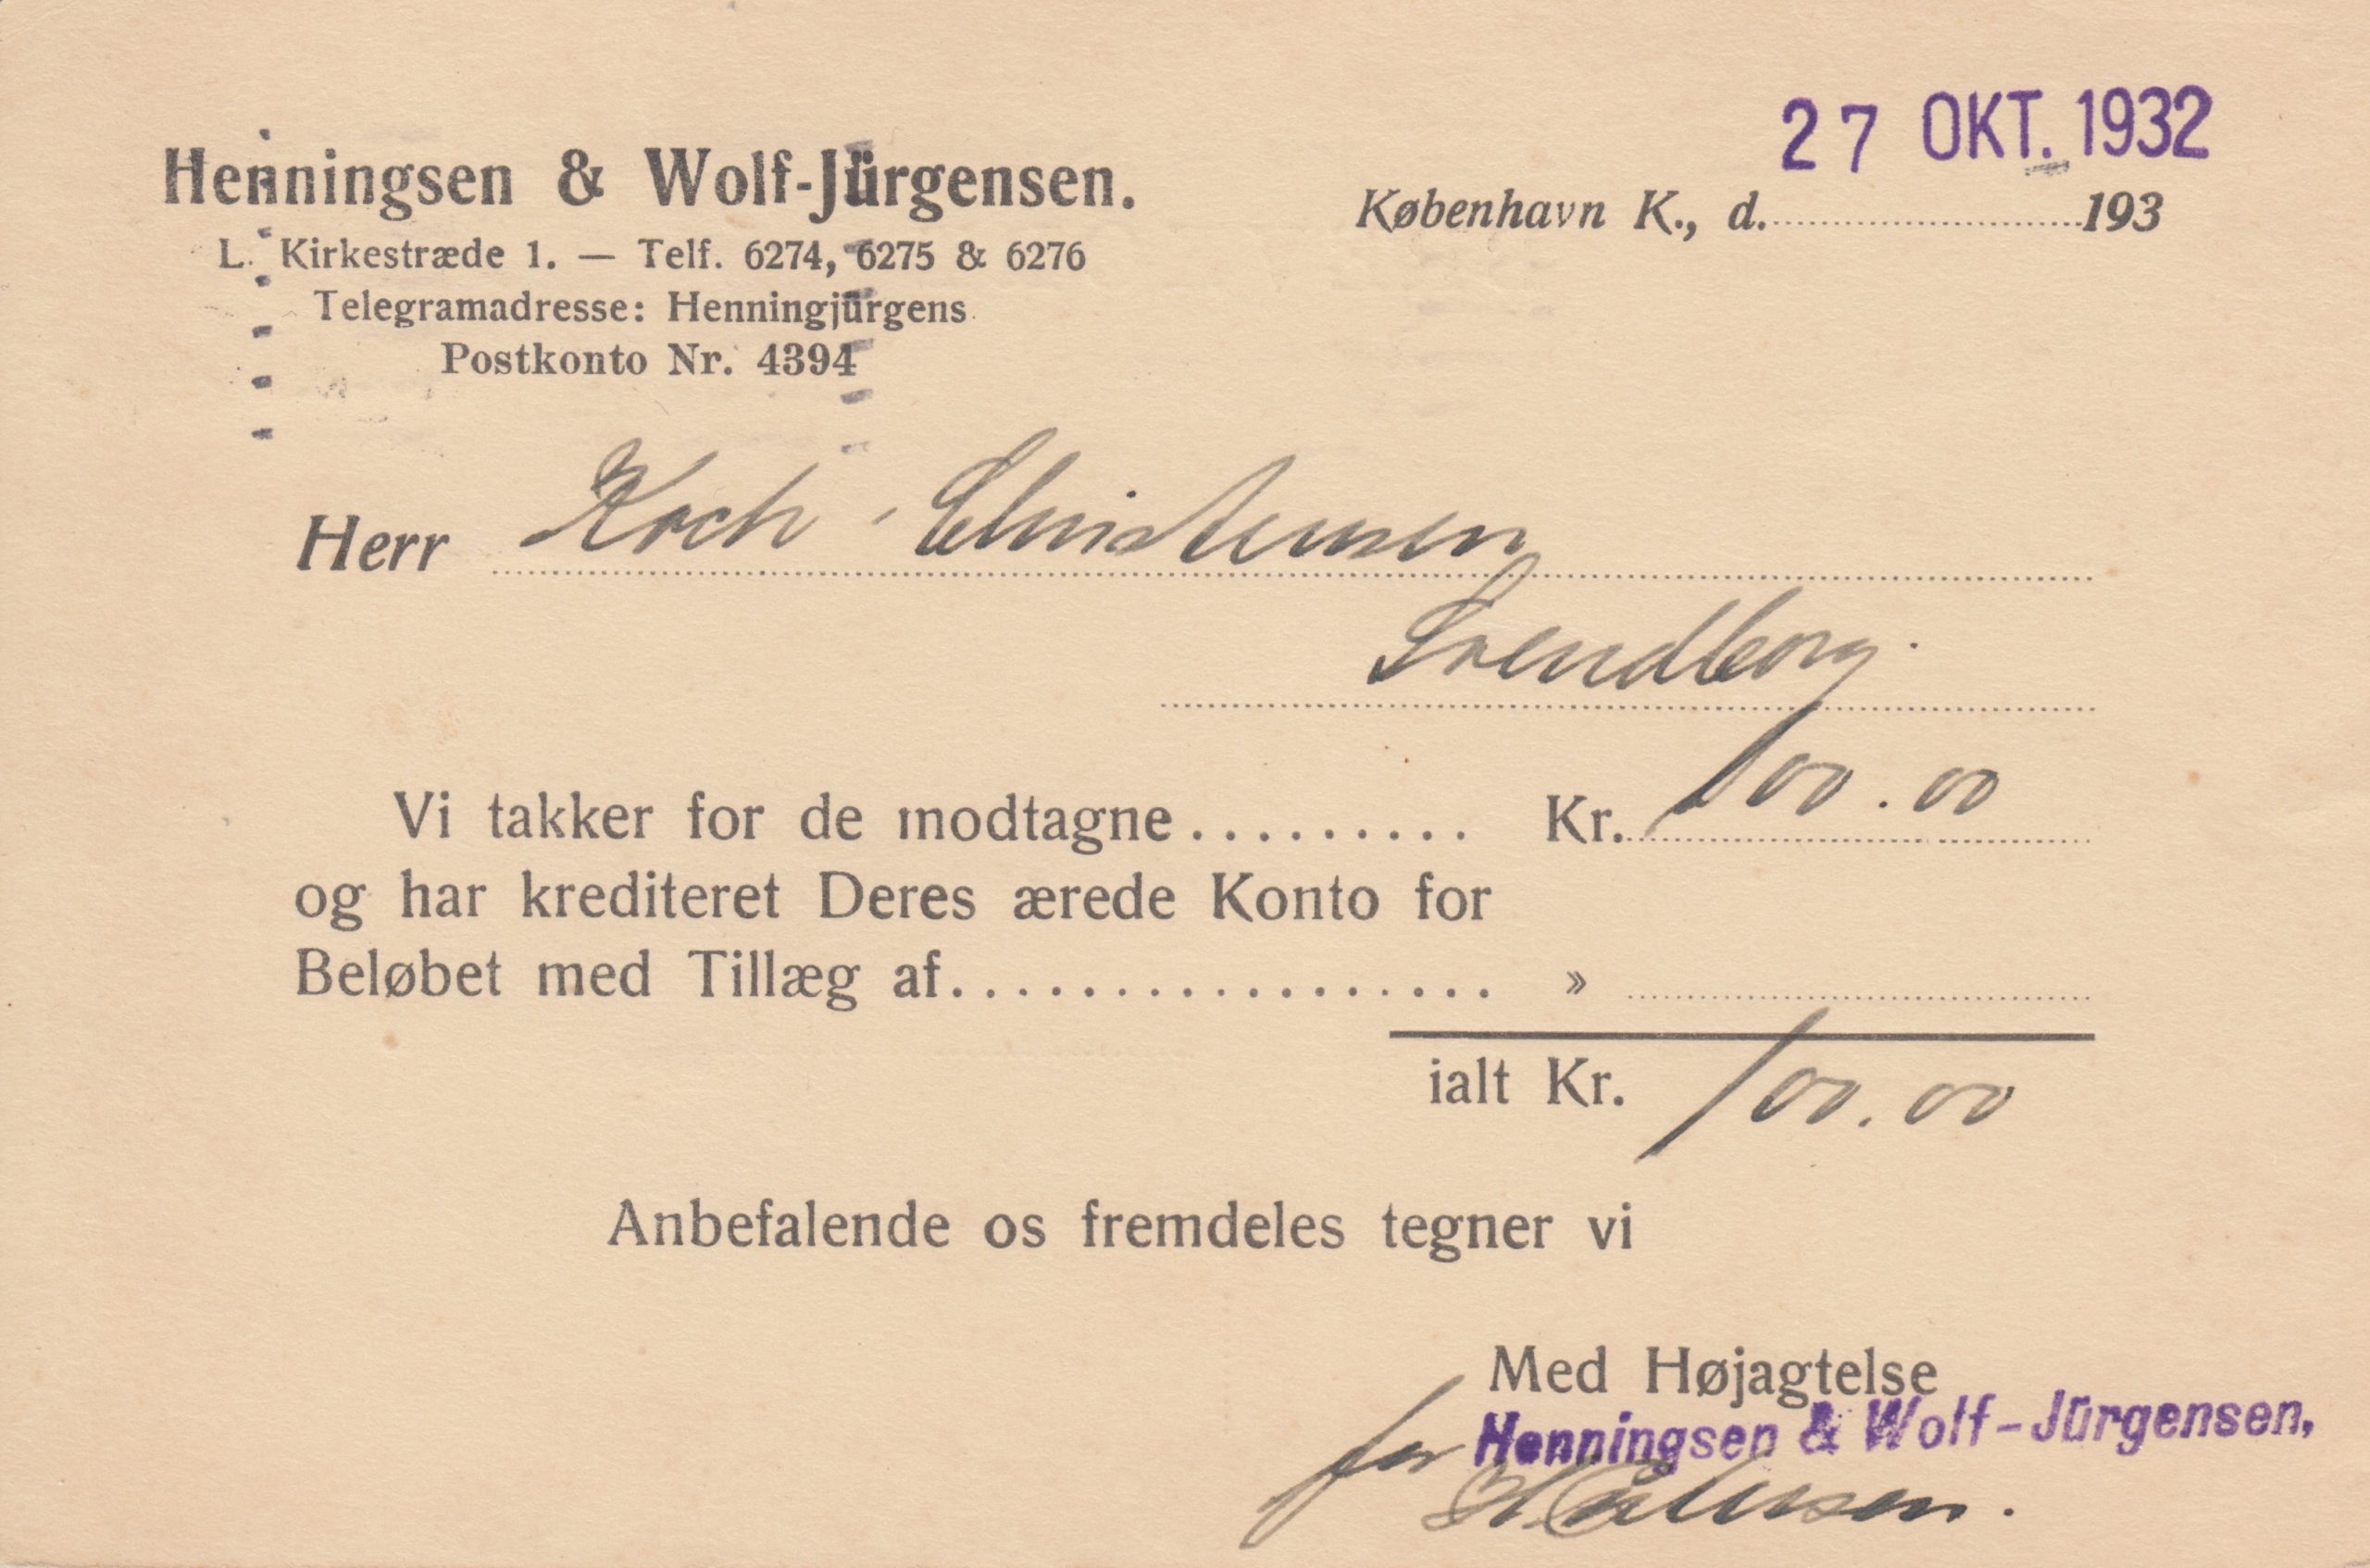 27 OKT. 1932
Henningsen & Wolf-Jürgensen.
København K., d. 193
L. Kirkestræde 1. — Telf. 6274, 6275 & 6276
Telegramadresse: Henningjürgens
Postkonto Nr. 4394
Herr Koch-Christensen
Svendborg.
Vi takker for de modtagne......... Kr. 100.00
og har krediteret Deres ærede Konto for
Beløbet med Tillæg af................ »
ialt Kr. 100.00
Anbefalende os fremdeles tegner vi
Med Højagtelse
for Henningsen & Wolf-Jürgensen,